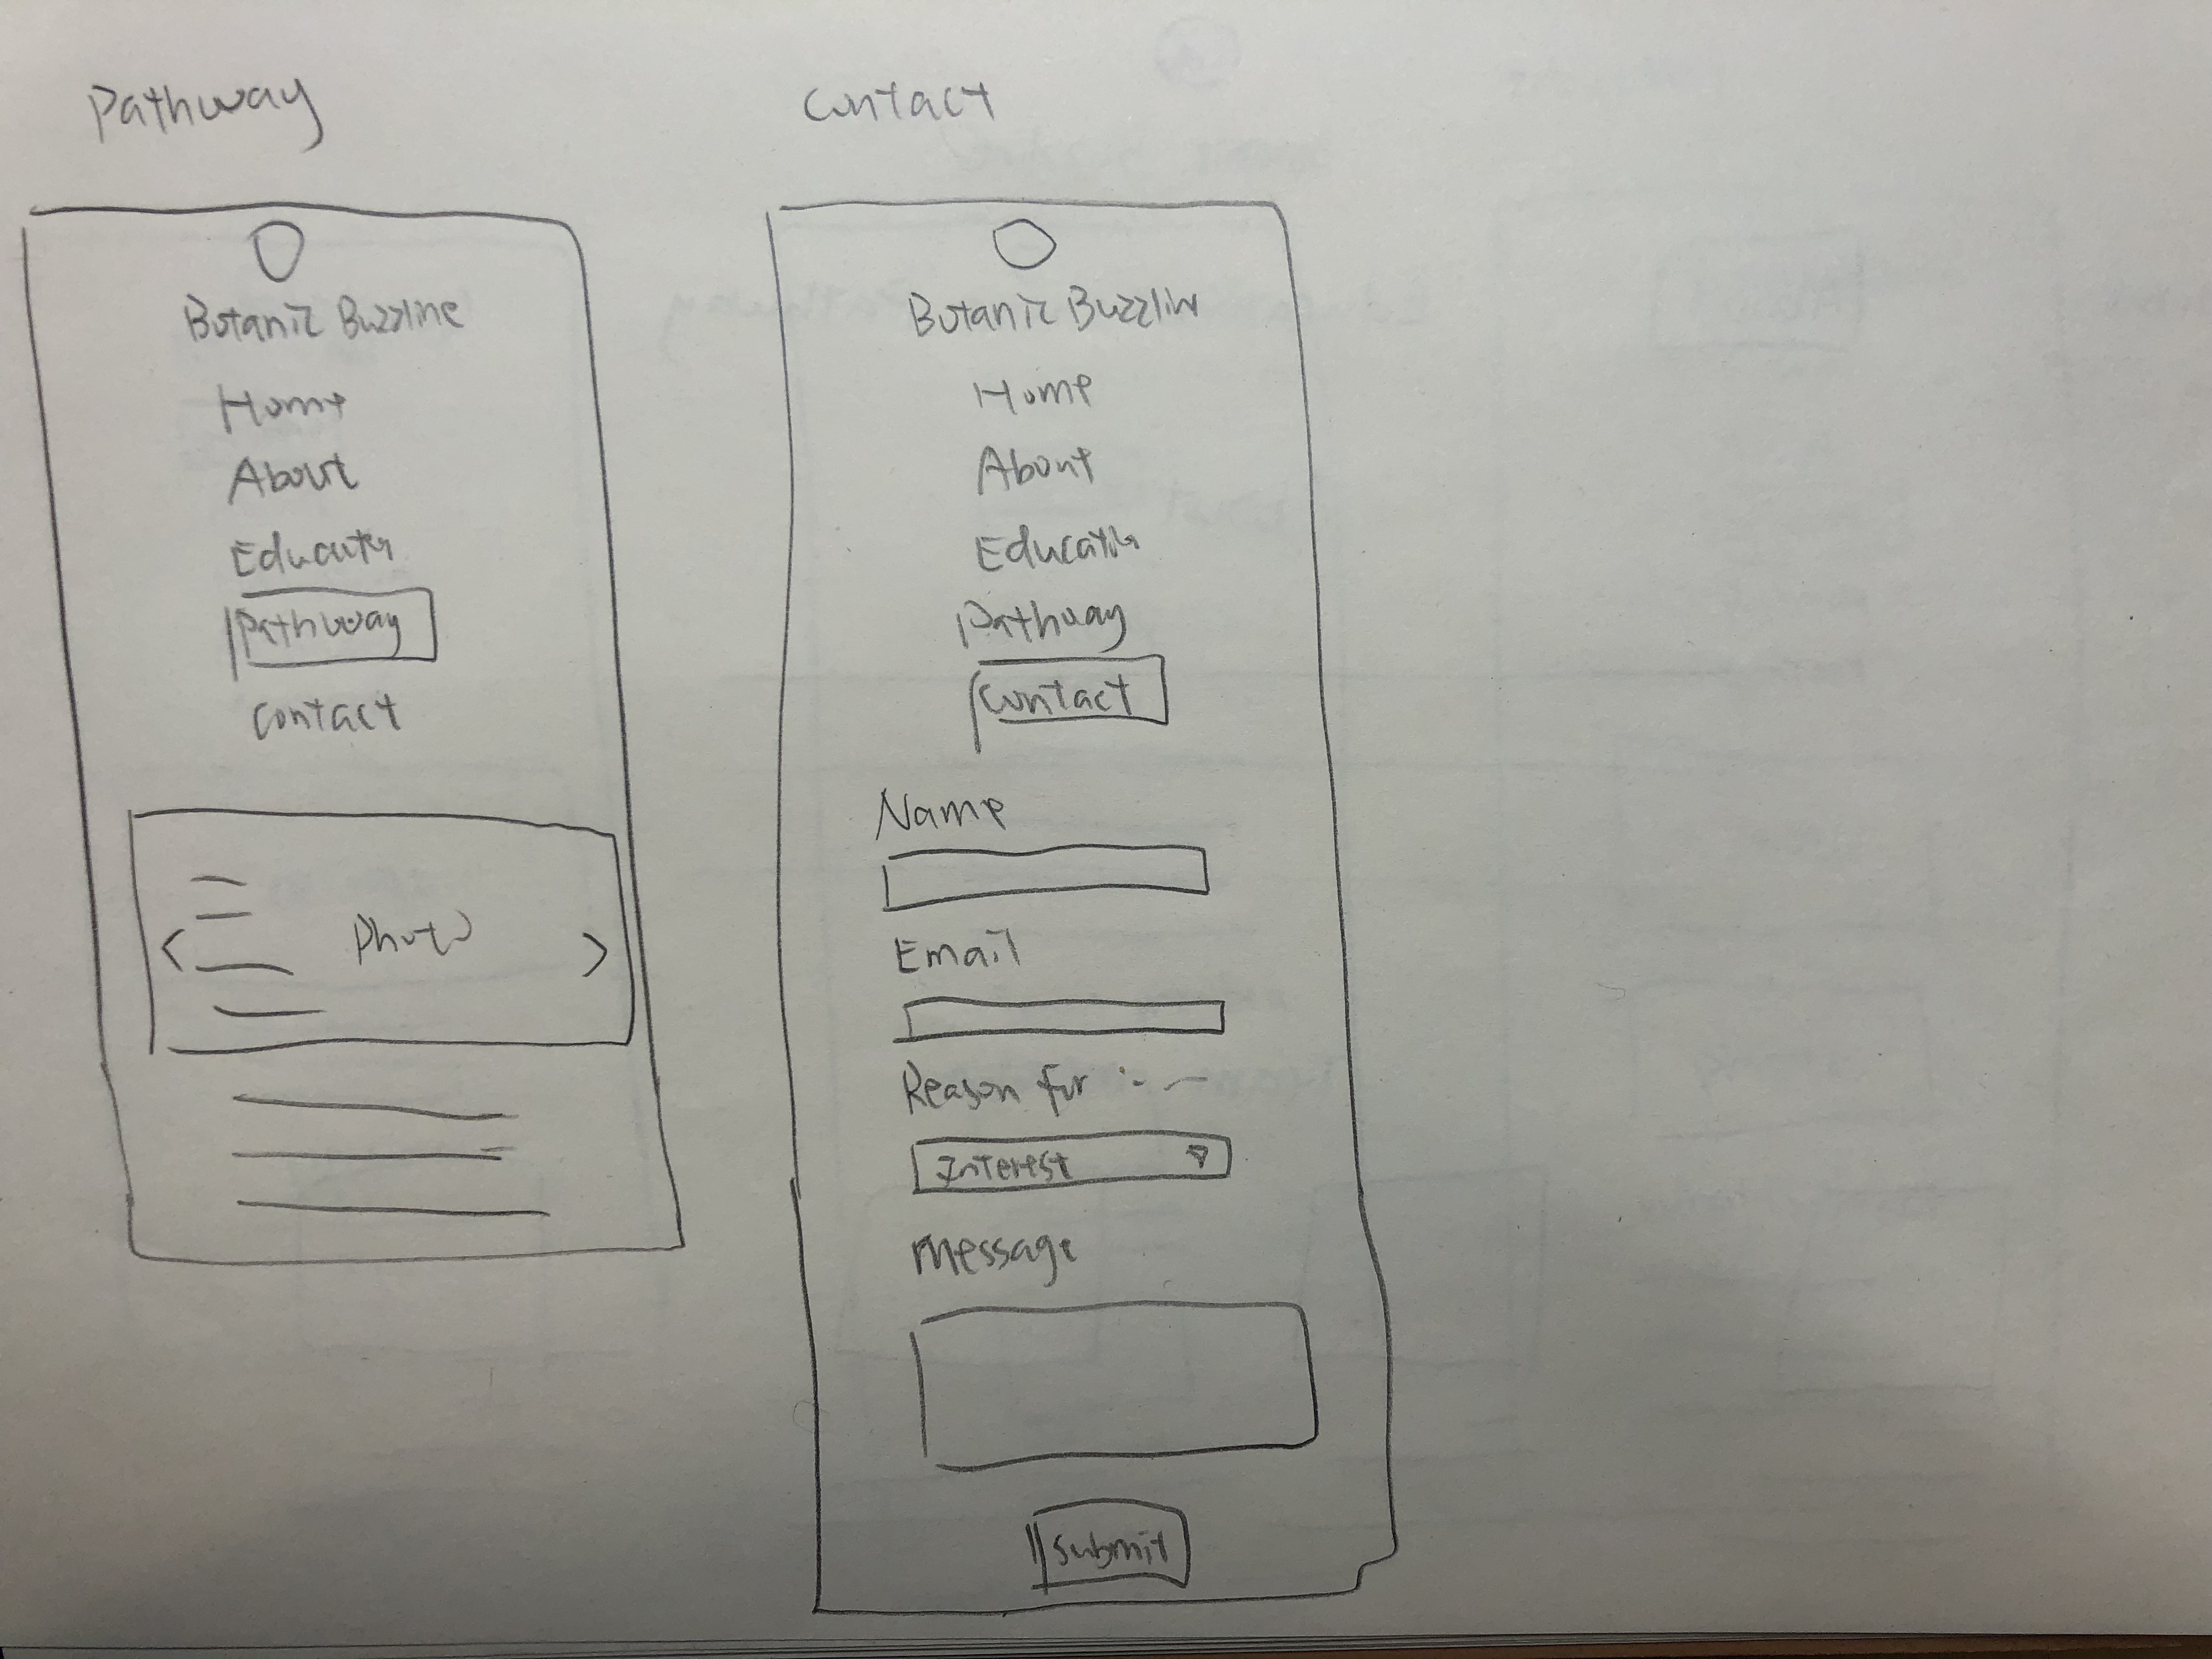 Pathway
Botanic Buzzline
Home
About
Education
Pathway
Contact
Photo
Contact
Botanic Buzzline
Home
About
Education
Pathway
Contact
Name
Email
Reason for
Interest
Message
Submit